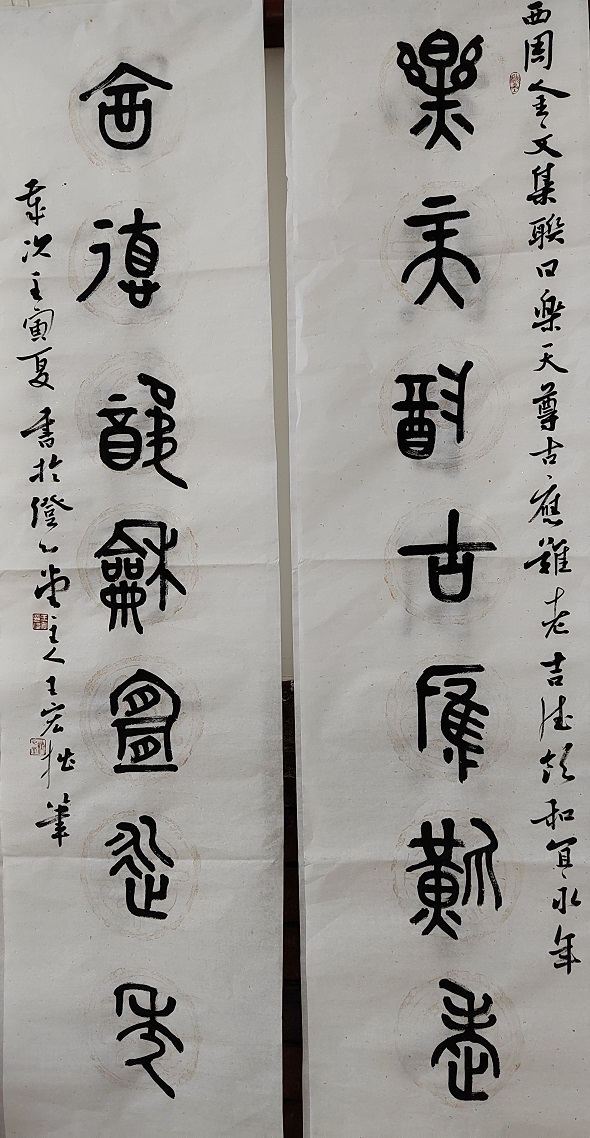 西周金文集聯曰樂天尊古應難老吉德和宜永年
樂天尊古應難老
德龢宜永年
歲次壬寅夏書於澄心堂主人王宏拙筆